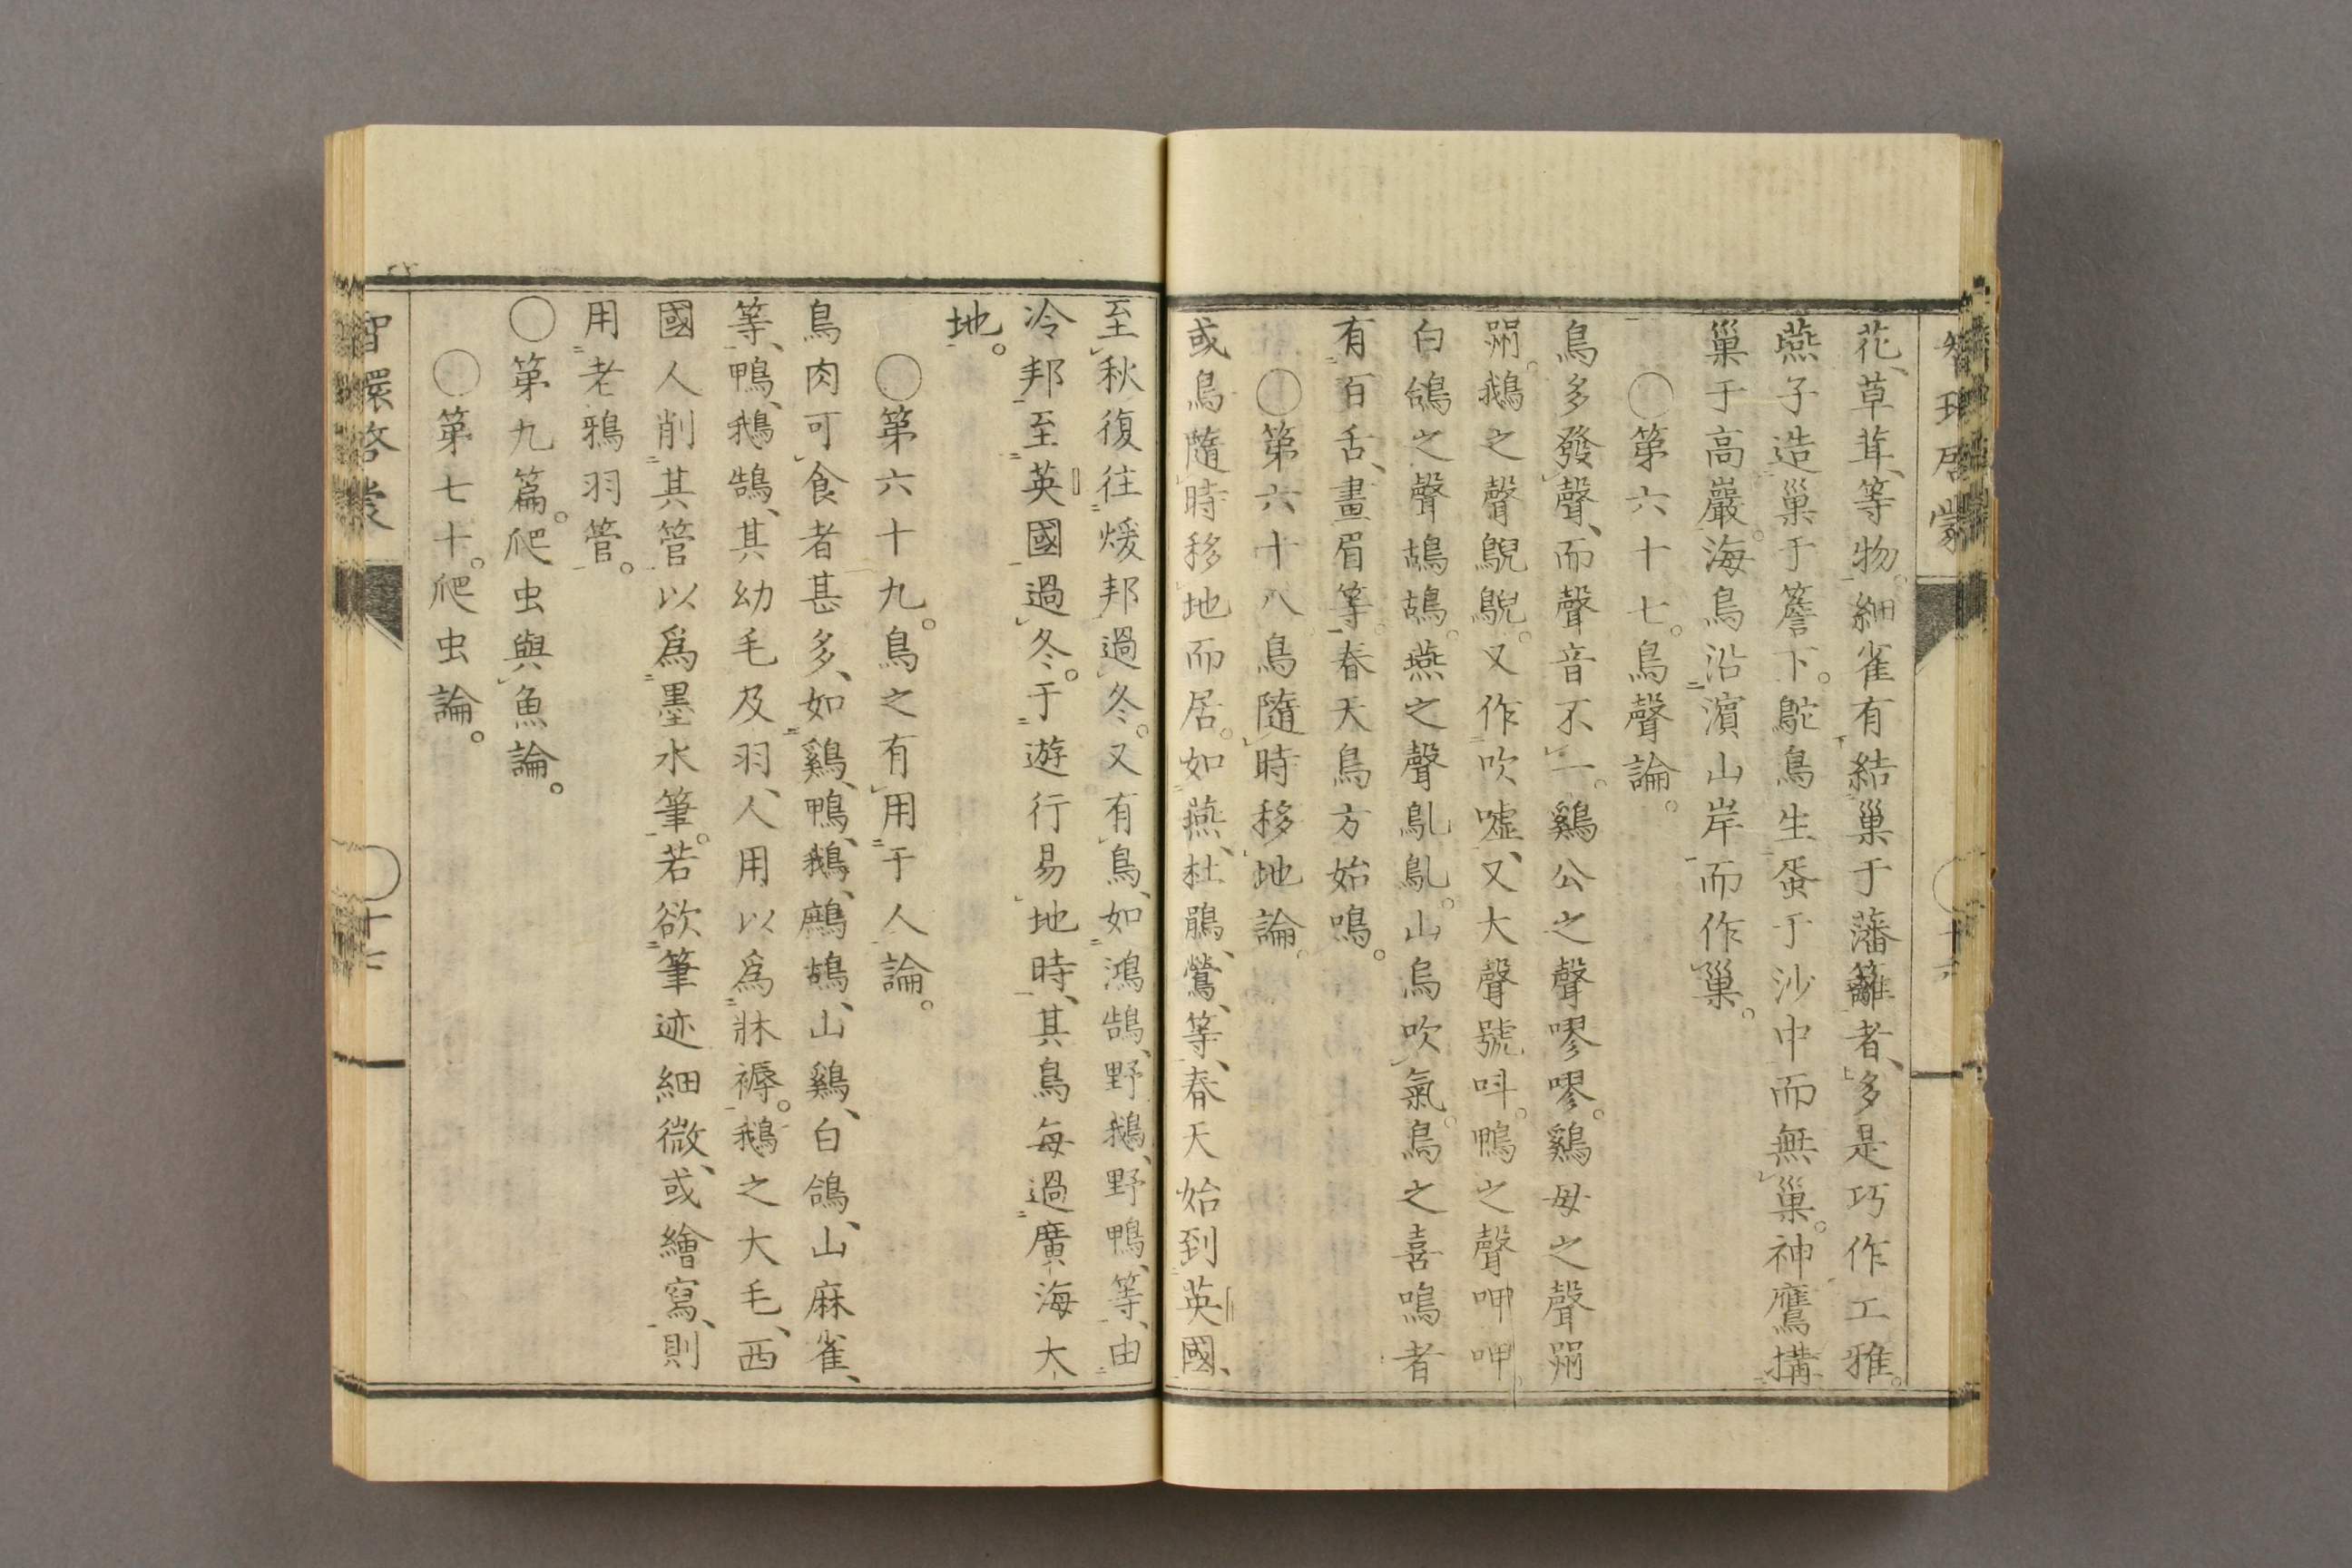 花、草茸、等物。細雀有結巢于藩籬者、多是巧作工雅。
燕子造巢于簷下。鴕鳥生蛋于沙中而無巢。神鷹搆
巢于高巖。海鳥沿濵山岸而作巢。
○第六十七。鳥聲論。
鳥多發聲、而聲音不一。鷄公之聲嘐嘐。鷄母之聲喌
喌。鵝之聲鶃鶃。又作吹噓、又大聲號呌。鴨之聲呷呷。
白鴿之聲鴣鴣。燕之聲鳦鳦。山烏吹氣。鳥之喜鳴者
有百舌、畫眉等。春天鳥方始鳴。
○第六十八鳥隨時移地論。
或鳥隨時移地而居。如燕、杜鵑、鶯、等、春天始到英國、
至秋復往煖邦過冬。又有鳥、如鴻鵠、野鵝、野鴨、等、由
冷邦至英國過冬。于遊行易地時、其鳥每過廣海大
地。
○第六十九。鳥之有用于人論。
鳥肉可食者甚多、如鷄、鴨、鵝、鷓鴣、山鷄、白鴿、山麻雀、
等、鴨、鵝、鵠、其幼毛及羽、人用以爲牀褥。鵝之大毛、西
國人削其管以爲墨水筆。若欲筆迹細微、或繪寫、則
用老鴉羽管。
○第九篇。爬虫與魚論。
○第七十。爬虫論。
智環啓蒙